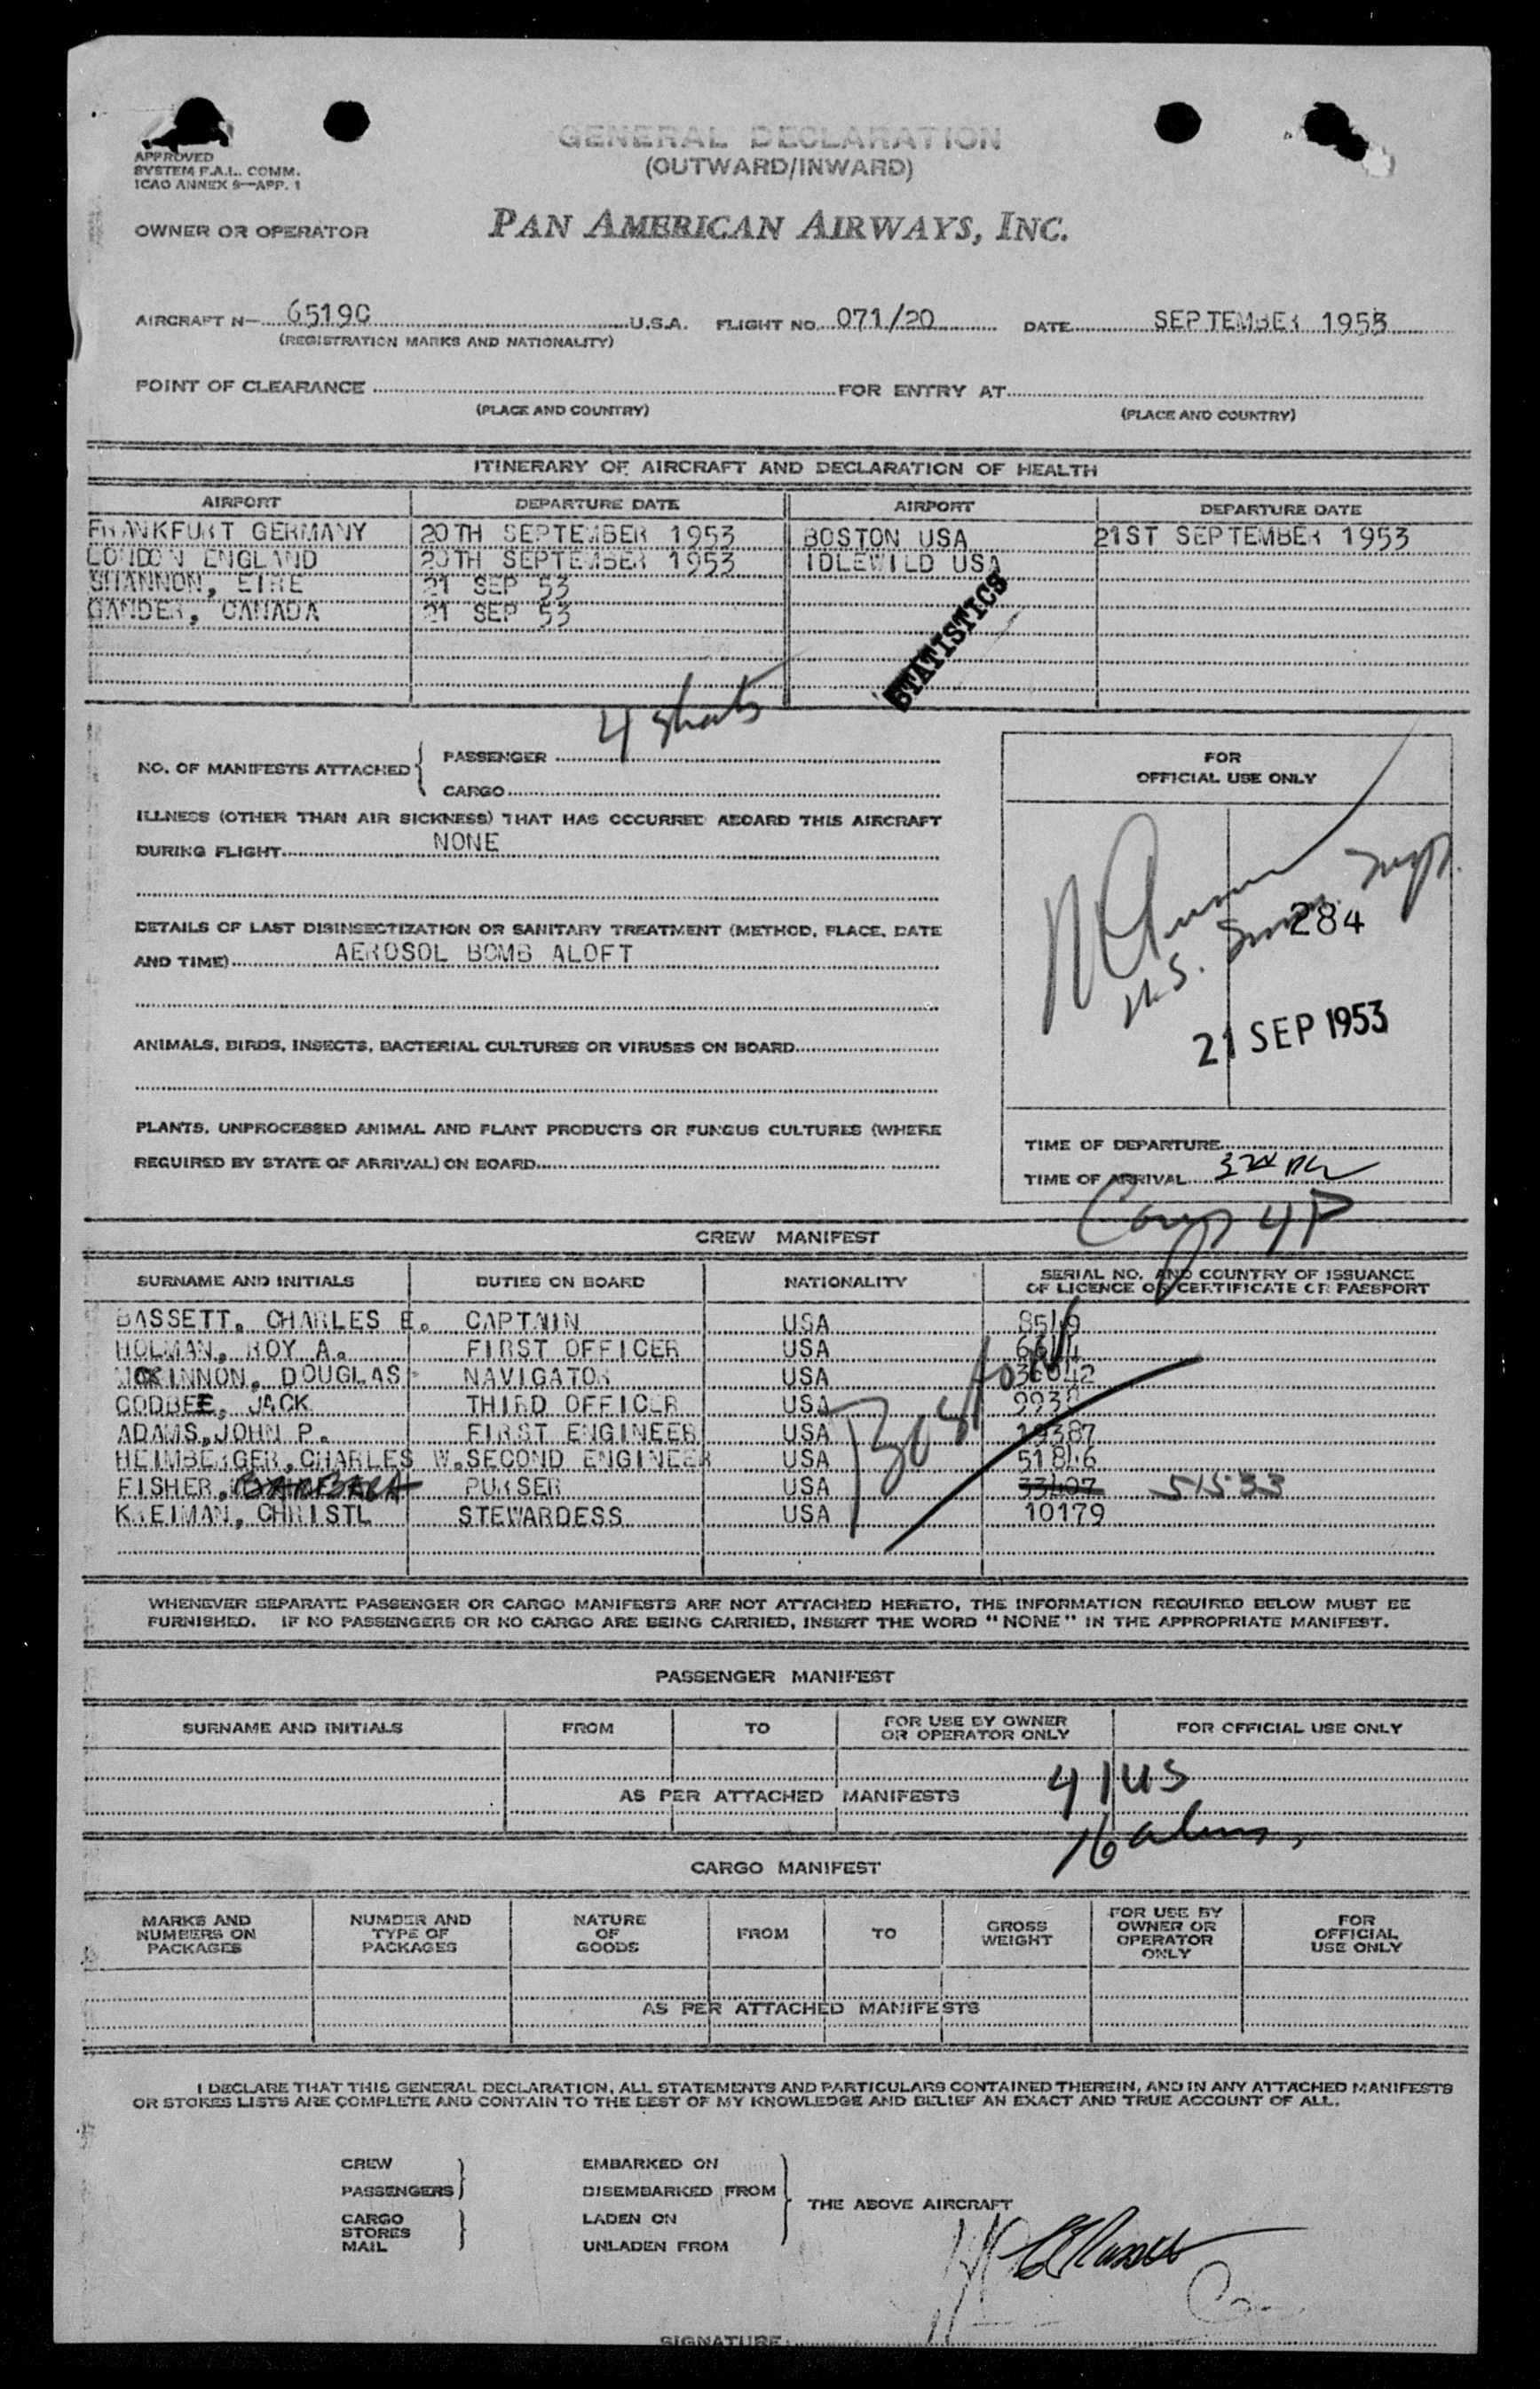 APPROVED
SYSTEM F.A.L. COMM.
ICAO ANNEX 9—APP. 1
GENERAL DECLARATION
(OUTWARD/INWARD)
OWNER OR OPERATOR PAN AMERICAN AIRWAYS, INC.
AIRCRAFT N— 6519C U.S.A. FLIGHT NO. 071/20 DATE SEPTEMBER 1953
(REGISTRATION MARKS AND NATIONALITY)
POINT OF CLEARANCE FOR ENTRY AT
(PLACE AND COUNTRY) (PLACE AND COUNTRY)
ITINERARY OF AIRCRAFT AND DECLARATION OF HEALTH
AIRPORT DEPARTURE DATE AIRPORT DEPARTURE DATE
FRANKFURT GERMANY 20TH SEPTEMBER 1953 BOSTON USA 21ST SEPTEMBER 1953
LONDON ENGLAND 20TH SEPTEMBER 1953 IDLEWILD USA
SHANNON, EIRE 21 SEP 53
GANDER, CANADA 21 SEP 53
STATISTICS
NO. OF MANIFESTS ATTACHED PASSENGER 4 sheets
CARGO
FOR
OFFICIAL USE ONLY
ILLNESS (OTHER THAN AIR SICKNESS) THAT HAS OCCURRED ABOARD THIS AIRCRAFT
DURING FLIGHT NONE
DETAILS OF LAST DISINSECTIZATION OR SANITARY TREATMENT (METHOD, PLACE, DATE
AND TIME) AEROSOL BOMB ALOFT
U.S.
284
21 SEP 1953
ANIMALS, BIRDS, INSECTS, BACTERIAL CULTURES OR VIRUSES ON BOARD
PLANTS, UNPROCESSED ANIMAL AND PLANT PRODUCTS OR FUNGUS CULTURES (WHERE
REQUIRED BY STATE OF ARRIVAL) ON BOARD
TIME OF DEPARTURE
TIME OF ARRIVAL
CREW MANIFEST
SURNAME AND INITIALS DUTIES ON BOARD NATIONALITY SERIAL NO. AND COUNTRY OF ISSUANCE
OF LICENCE OR CERTIFICATE OR PASSPORT
BASSETT, CHARLES E. CAPTAIN USA
HOLMAN, ROY A. FIRST OFFICER USA
MCKINNON, DOUGLAS NAVIGATOR USA
GODBEE, JACK THIRD OFFICER USA
ADAMS, JOHN P. FIRST ENGINEER USA 19387
HEIMBERGER, CHARLES W. SECOND ENGINEER USA 51846
FISHER, BARBARA PURSER USA 33407 51533
KREIMAN, CHRISTL STEWARDESS USA 10179
Boston
WHENEVER SEPARATE PASSENGER OR CARGO MANIFESTS ARE NOT ATTACHED HERETO, THE INFORMATION REQUIRED BELOW MUST BE
FURNISHED. IF NO PASSENGERS OR NO CARGO ARE BEING CARRIED, INSERT THE WORD "NONE" IN THE APPROPRIATE MANIFEST.
PASSENGER MANIFEST
SURNAME AND INITIALS FROM TO FOR USE BY OWNER
OR OPERATOR ONLY FOR OFFICIAL USE ONLY
41 US
AS PER ATTACHED MANIFESTS
16 aliens
CARGO MANIFEST
MARKS AND
NUMBERS ON
PACKAGES
NUMBER AND
TYPE OF
PACKAGES
NATURE
OF
GOODS
FROM
TO
GROSS
WEIGHT
FOR USE BY
OWNER OR
OPERATOR
ONLY
FOR
OFFICIAL
USE ONLY
AS PER ATTACHED MANIFESTS
I DECLARE THAT THIS GENERAL DECLARATION, ALL STATEMENTS AND PARTICULARS CONTAINED THEREIN, AND IN ANY ATTACHED MANIFESTS
OR STORES LISTS ARE COMPLETE AND CONTAIN TO THE BEST OF MY KNOWLEDGE AND BELIEF AN EXACT AND TRUE ACCOUNT OF ALL.
CREW EMBARKED ON
PASSENGERS DISEMBARKED FROM
THE ABOVE AIRCRAFT
CARGO LADEN ON
STORES
MAIL UNLADEN FROM
SIGNATURE